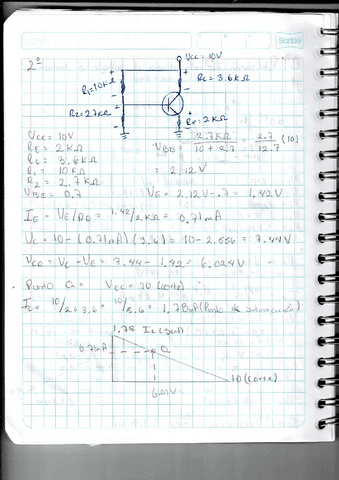 Scribe
2º
Vcc = 10V
R1=10kΩ
Rc = 3.6kΩ
R2=2.7kΩ
RE=2kΩ
Vcc = 10V
RE = 2kΩ
Rc = 3.6kΩ
R1 = 10kΩ
R2 = 2.7kΩ
VBE = 0.7
VBB = 2.7kΩ / 10 + 2.7 = 2.7 / 12.7 (10)
= 2.12V
VE = 2.12V - .7 = 1.42V
IE = VE/RE = 1.42/2kΩ = 0.71mA
Vc = 10 - (0.71mA)(3.6) = 10 - 2.556 = 7.44V
Vce = Vc - VE = 7.44 - 1.42 = 6.024V
Punto Q = Vcc = 10 (corte)
Ic = 10/2+3.6 = 10/5.6 = 1.78mA (Punto de saturación)
1.78 Ic (sat)
0.71mA
Q
10 (corte)
6.02V